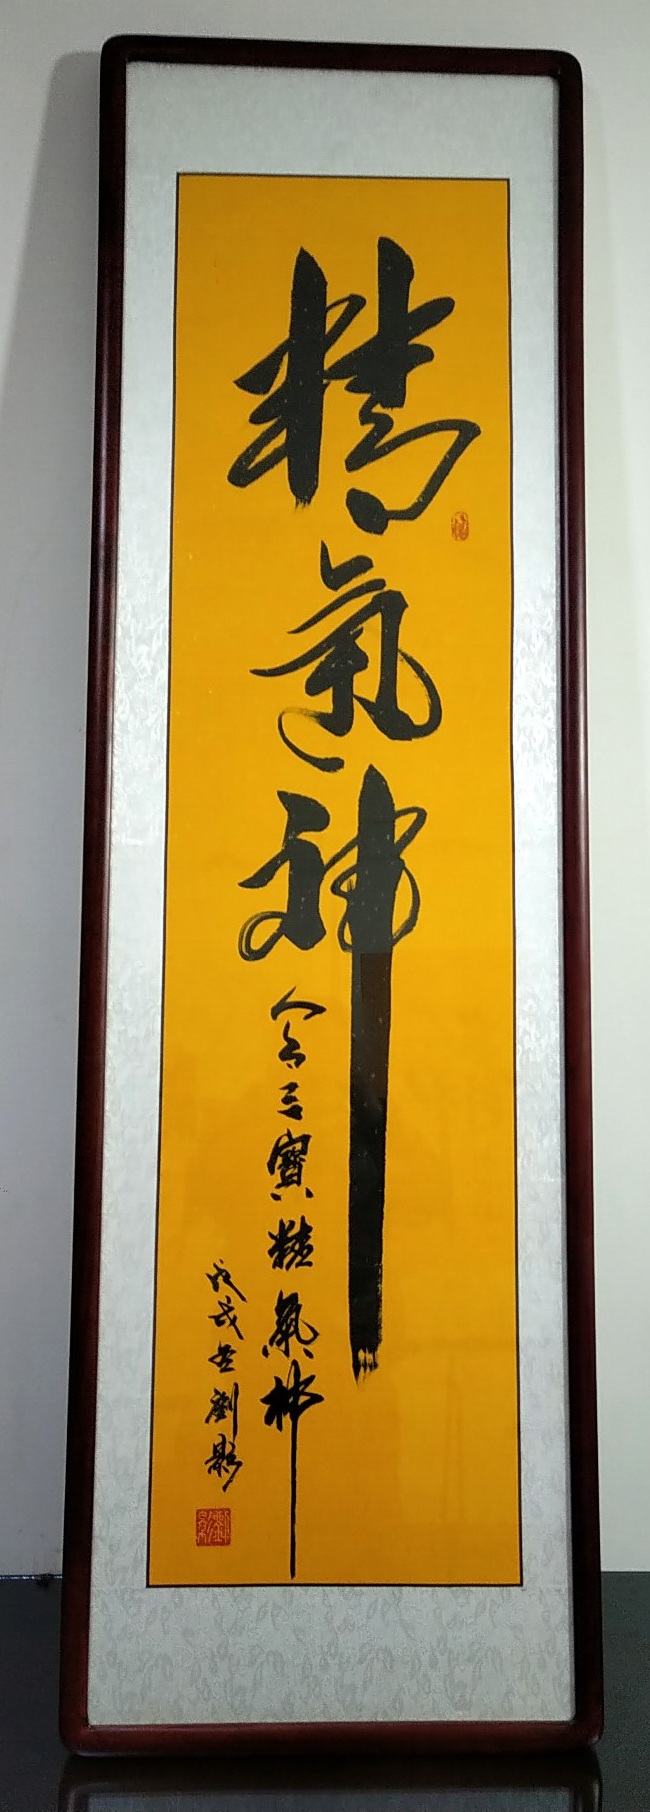 精氣神
人有三寶精氣神
戊戌 劉影